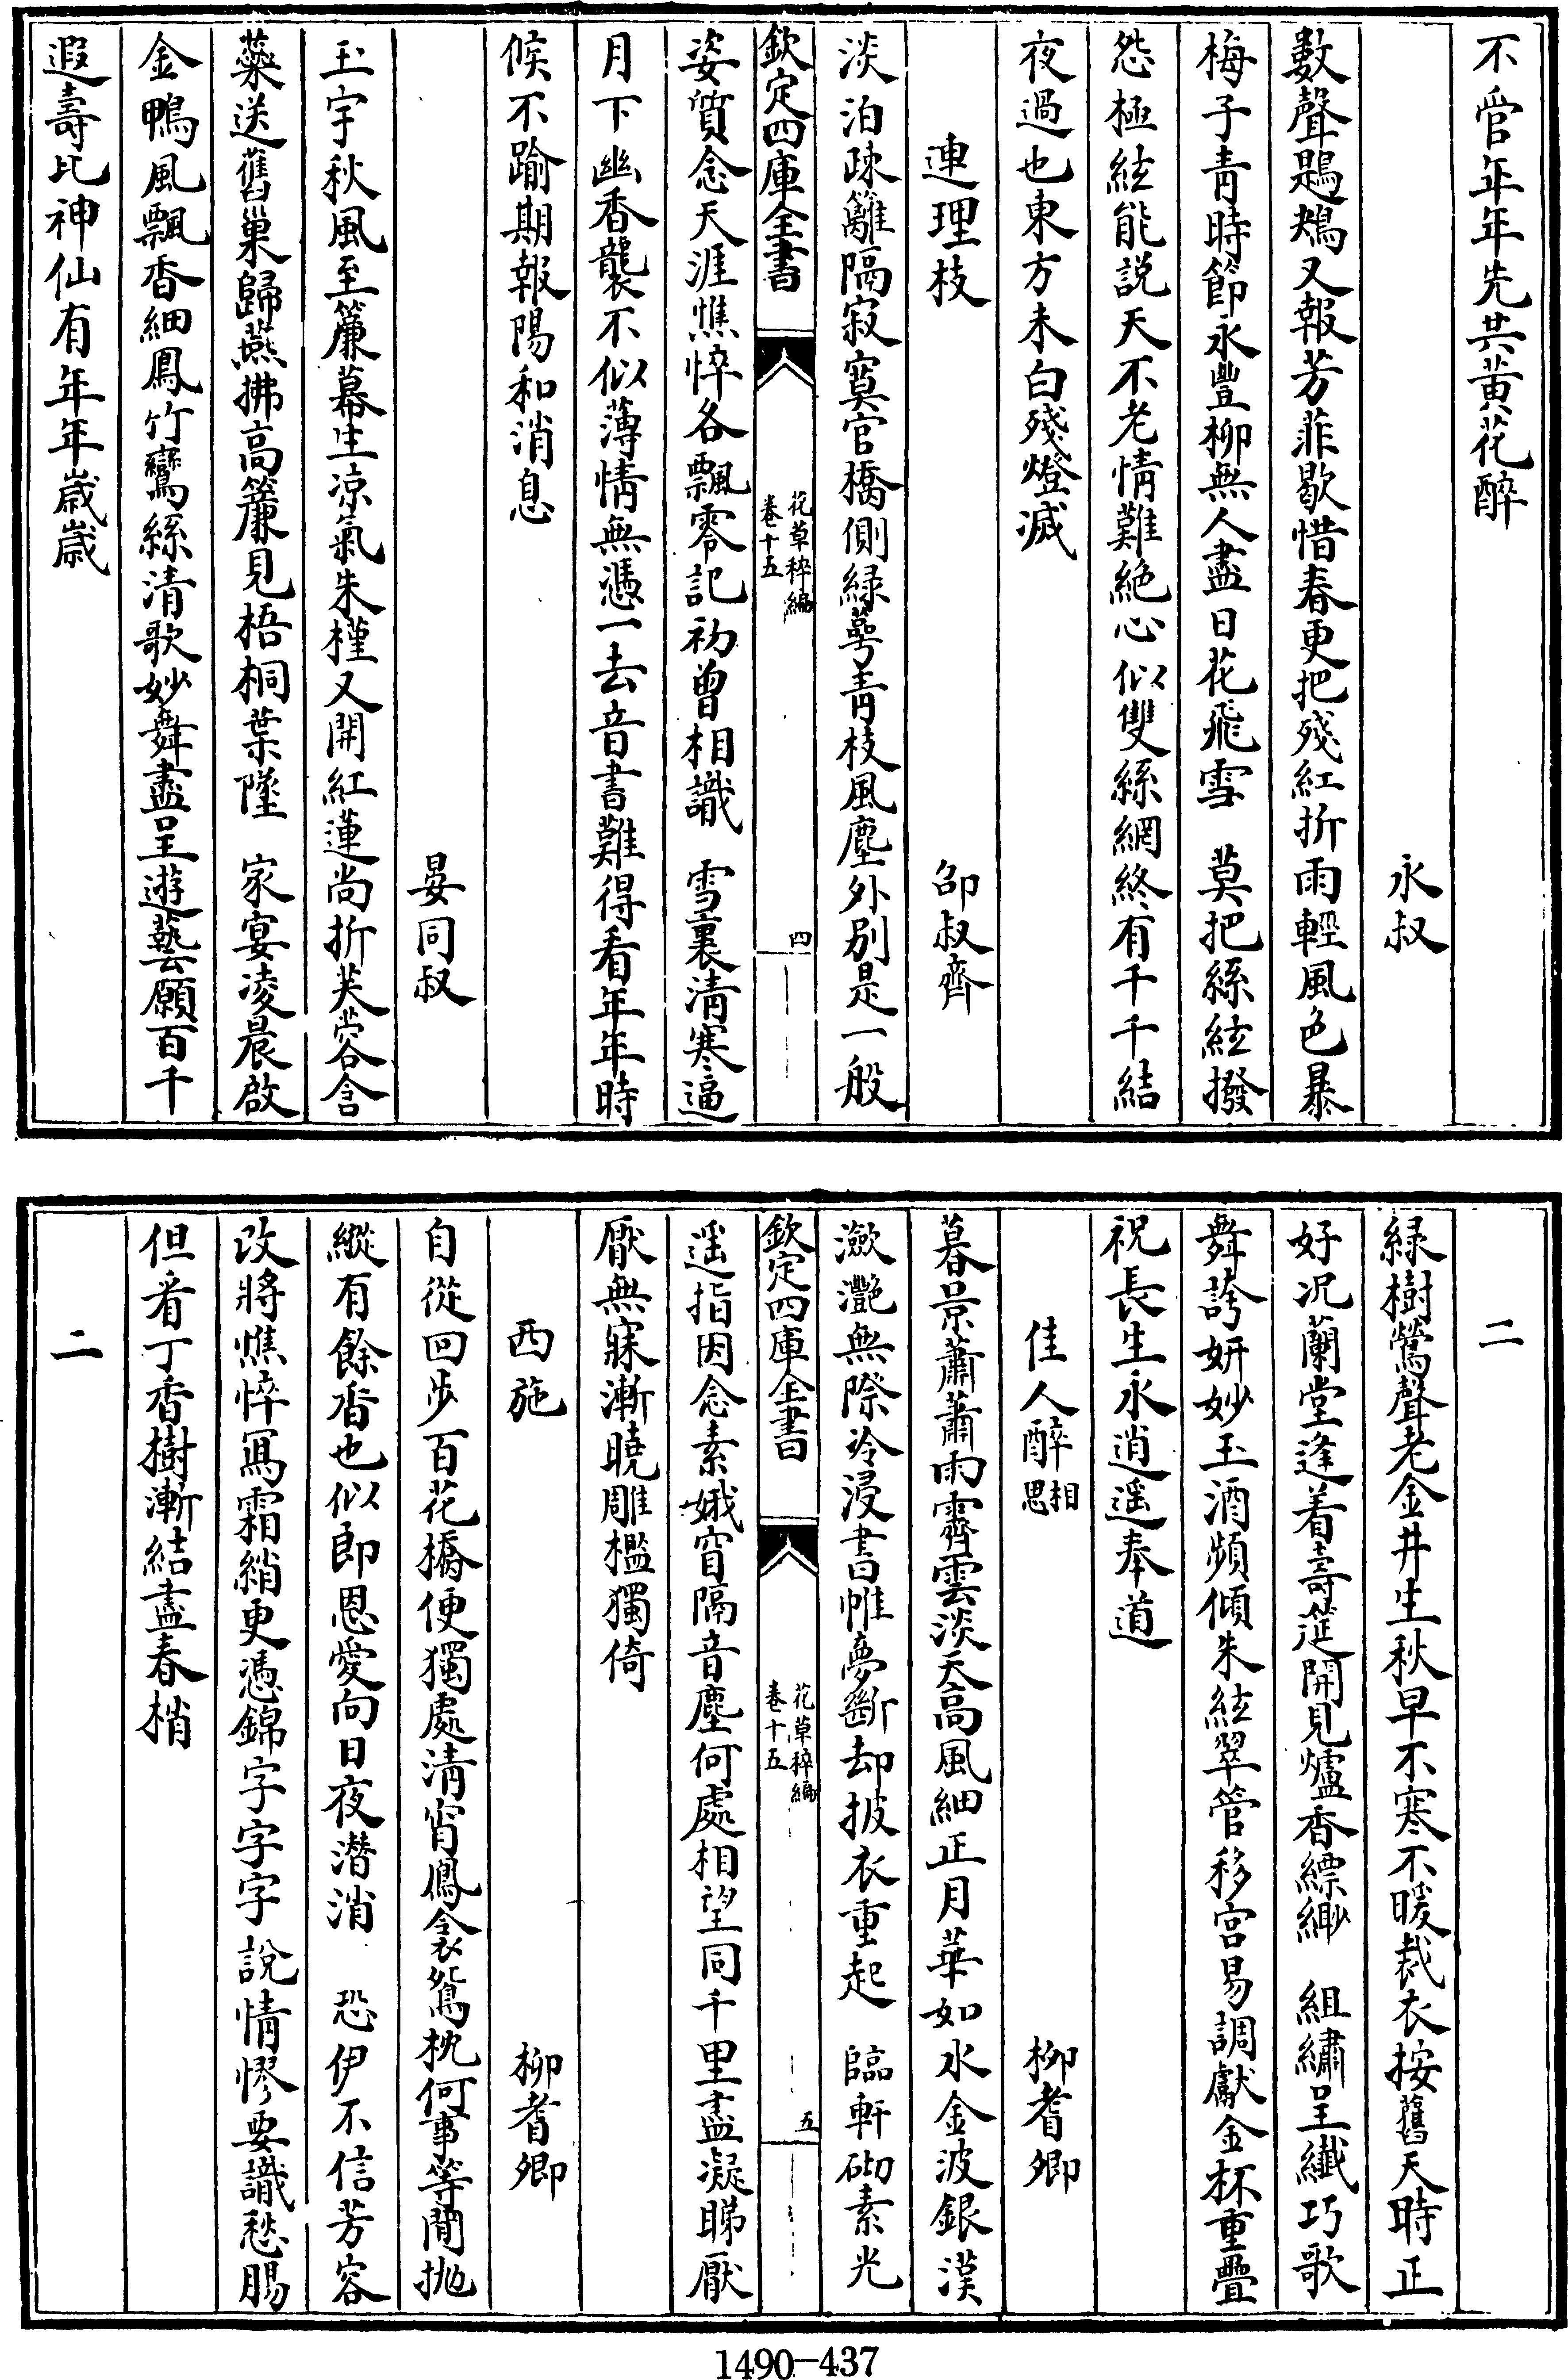 不管年年先共黄花醉
永叔
數聲鶗鴂又報芳菲歇惜春更把殘紅折雨輕風色暴
梅子青時節永豐柳無人盡日花飛雪　莫把絲絃撥
怨極絃能説天不老情難絶心似雙絲網終有千千結
夜過也東方未白殘燈滅
連理枝　邵叔齊
淡泊疎籬隔寂寞官橋側緑萼青枝風塵外别是一般
欽定四庫全書　花草稡編　卷十五　四
姿質念天涯憔悴各飄零記初曾相識　雪裏清寒逼
月下幽香襲不似薄情無憑一去音書難得看年年時
候不踰期報陽和消息
晏同叔
玉宇秋風至簾幕生凉氣朱槿又開紅蓮尚折芙蓉含
蘂送舊巢歸燕拂高簾見梧桐葉墜　家宴凌晨啟
金鴨風飄香細鳳竹鸞絲清歌妙舞盡呈遊藝願百千
遐壽比神仙有年年歲歲
二
緑樹鶯聲老金井生秋早不寒不暖裁衣按舊天時正
好况蘭堂逢着壽筵開見爐香縹緲　組繡呈纖巧歌
舞誇妍妙玉酒頻傾朱絃翠管移宫易調獻金杯重疊
祝長生永逍遥奉道
佳人醉相思　柳耆卿
暮景蕭蕭雨霽雲淡天高風細正月華如水金波銀漢
瀲灧無際冷浸書帷夢斷却披衣重起　臨軒砌素光
欽定四庫全書　花草稡編　卷十五　五
遥指因念素娥窅隔音塵何處相望同千里盡凝睇厭
厭無寐漸曉雕檻獨倚
西施　柳耆卿
自從回步百花橋便獨處清宵鳳衾鴛枕何事等閒抛
縱有餘香也似郎恩愛向日夜潜消　恐伊不信芳容
改將憔悴冩霜綃更憑錦字字字説情憀要識愁腸
但看丁香樹漸結盡春梢
二
1490—437